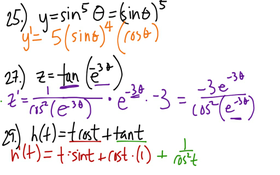 25.) y = sin⁵ θ = (sin θ)⁵
y' = 5 (sin θ)⁴ (cos θ)
27.) z = tan (e^(-3θ))
z' = 1 / cos² (e^(-3θ)) • e^(-3θ) • -3 = -3e^(-3θ) / cos² (e^(-3θ))
29.) h(t) = t cost + tant
h'(t) = t · sint + cost · (1) + 1 / cos² t